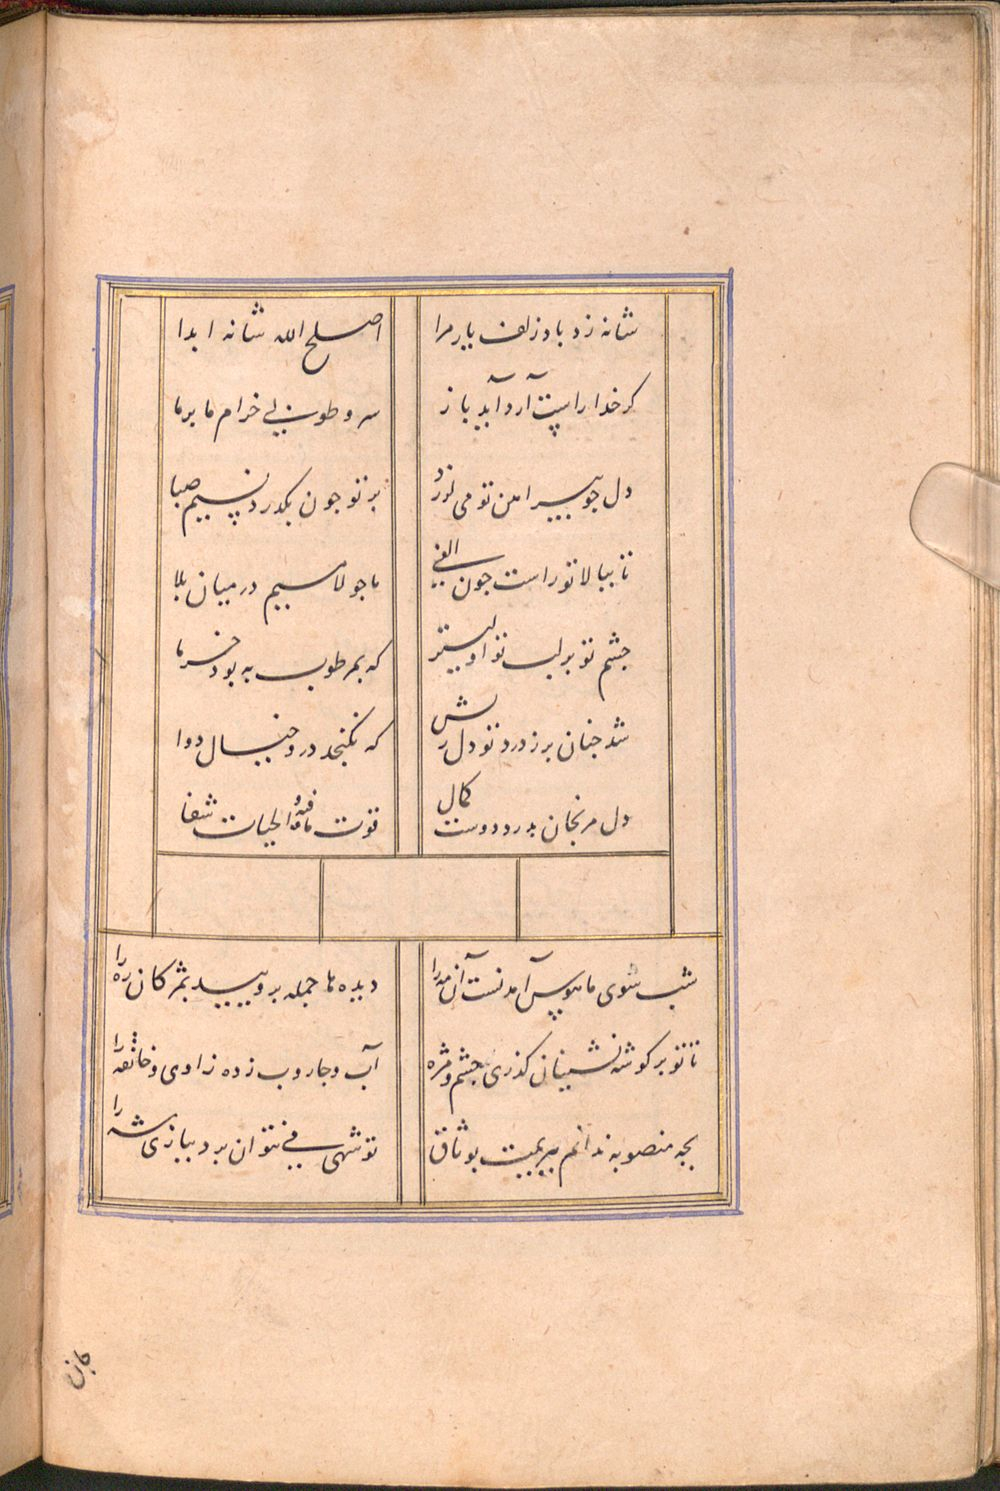 شانه زد باد زلف یار مرا
اصلح الله شانه ابدا
کر خدا راست آرد آید باز
سرو طوبی خرام ما بر ما
دل جو پیراهن تو می لرزد
بر تو جون بکدرد نسیم صبا
تا ببالا تو راست جون الفی
ما جو لامیم در میان بلا
جشم تو بر لب تو اولیتر
که بمرطوب به بود خرما
شد جنان بر ز درد تو دل ریش
که نکنجد درو خیال دوا
دل مرنجان بدرد دوست کمال
قوت مافیه الحیات شفا
شب سوی ما بهوس آمدنست آن مه را
دیده ها جمله بروبید بمژکان ره را
تا تو بر کوشه نشینان کذری جشم و مژه
آب و جاروب زده زاوی و خانقه را
بجه منصوبه ندانم ببریمت بوثاق
تو شهی می نتوان برد ببازی شه را